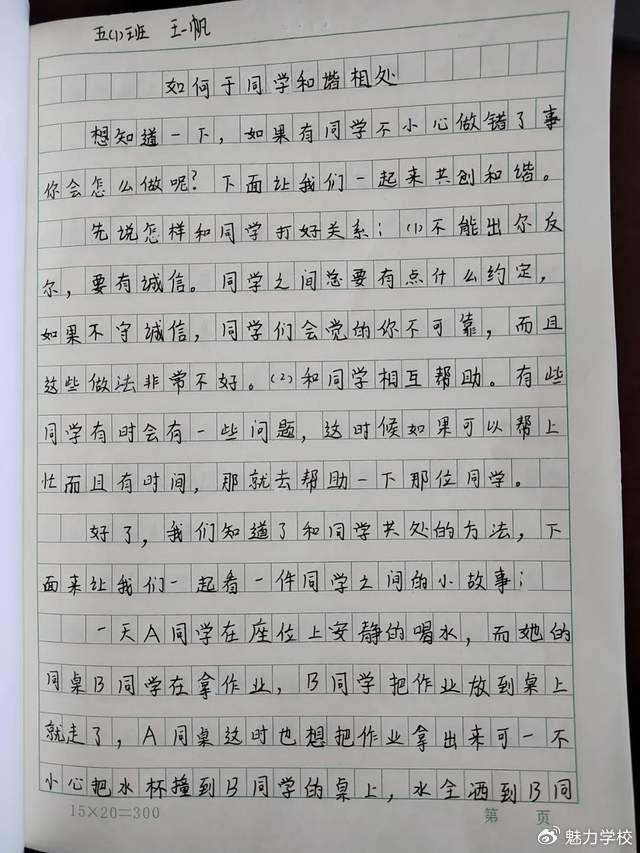 五(1)班 王一帆
如何于同学和谐相处
想知道一下，如果有同学不小心做错了事
你会怎么做呢？下面让我们一起来共创和谐。
先说怎样和同学打好关系；(1)不能出尔反
尔，要有诚信。同学之间总要有点什么约定，
如果不守诚信，同学们会觉的你不可靠，而且
这些做法非常不好。(2)和同学相互帮助。有些
同学有时会有一些问题，这时候如果可以帮上
忙而且有时间，那就去帮助一下那位同学。
好了，我们知道了和同学共处的方法，下
面来让我们一起看一件同学之间的小故事；
一天A同学在座位上安静的喝水，而她的
同桌B同学在拿作业，B同学把作业放到桌上
就走了，A同桌这时也想把作业拿出来可一不
小心把水杯撞到B同学的桌上，水全洒到B同
15×20=300
第 页
魅力学校